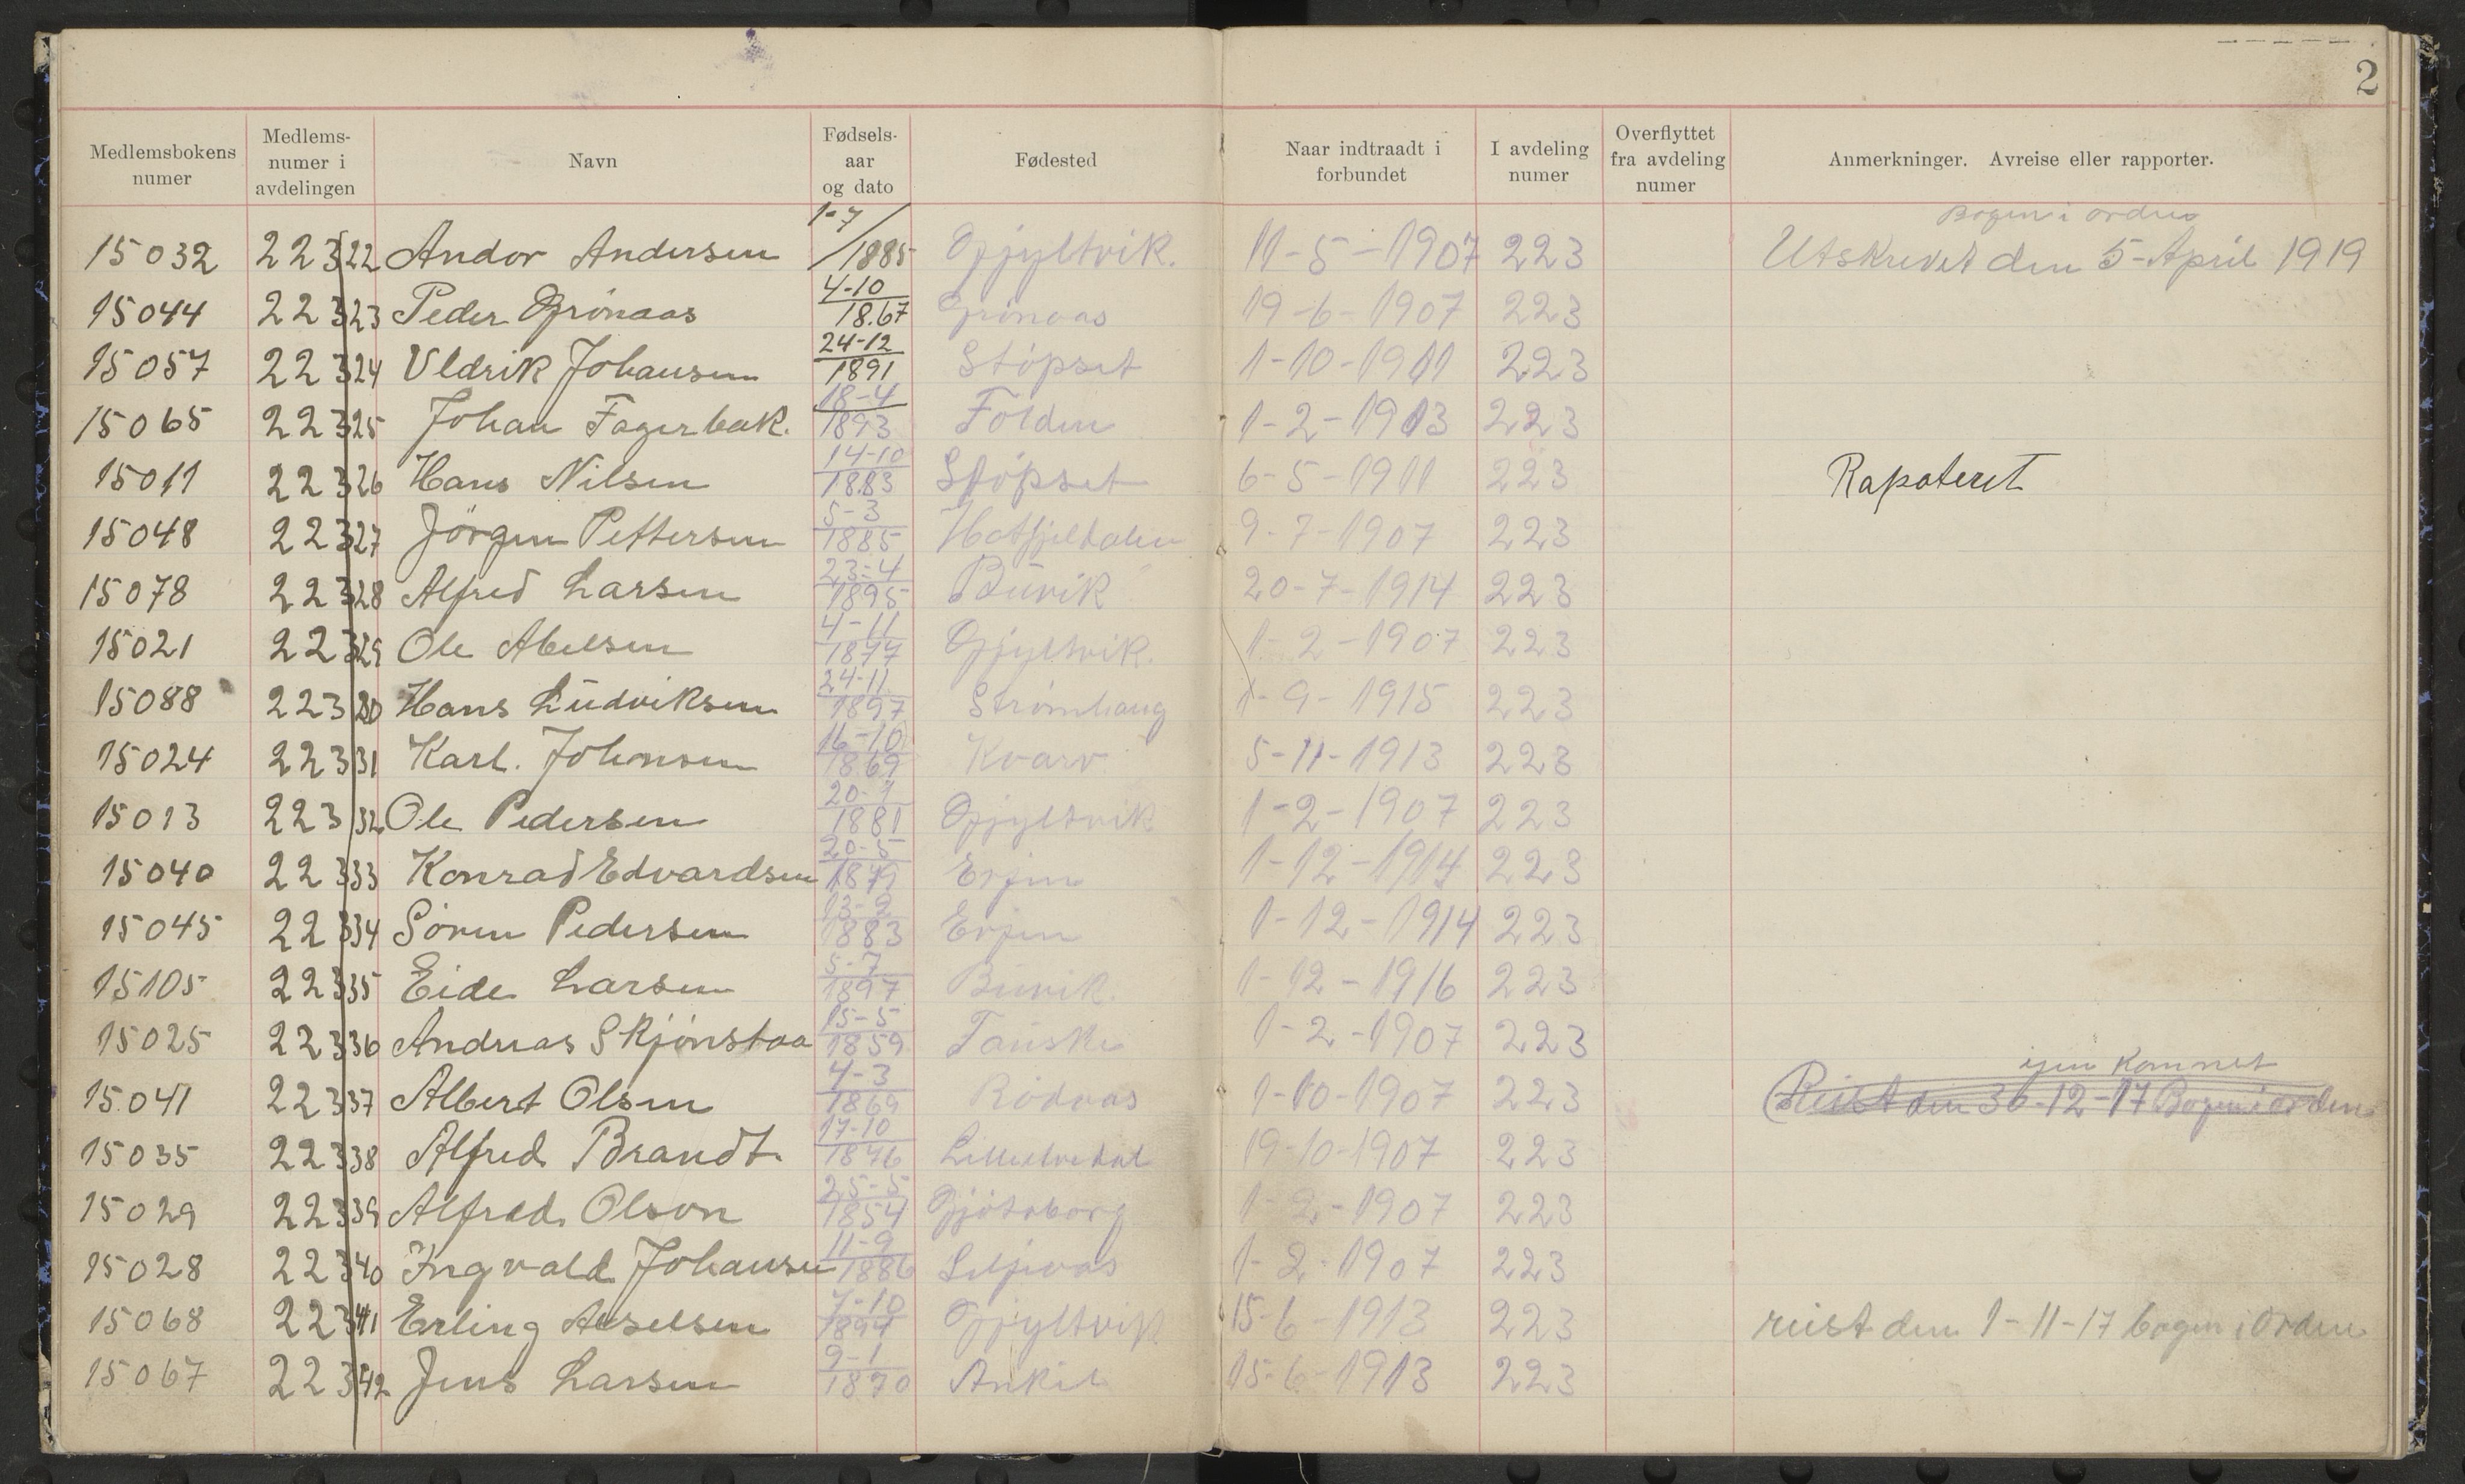 2
Medlemsbokens numer | Medlems-numer i avdelingen | Navn | Fødsels-aar og dato | Fødested | Naar indtraadt i forbundet | I avdeling numer | Overflyttet fra avdeling numer | Anmerkninger. Avreise eller rapporter.
15032 | 223 22 | Andor Andersen | 1-7/1885 | Gjyltvik. | 11-5-1907 | 223 | Bogen i orden Utskrevet den 5-April 1919
15044 | 223 23 | Peder Grönaas | 4-10 1867 | Grönaas | 19-6-1907 | 223
15057 | 223 24 | Uldrik Johansen | 24-12 1891 | Stöpset | 1-10-1911 | 223
15065 | 223 25 | Johan Fagerbak. | 18-4 1893 | Folden | 1-2-1913 | 223
15011 | 223 26 | Hans Nilsen | 14-10 1883 | Stöpset | 6-5-1911 | 223 | Rapoteret
15048 | 223 27 | Jörgen Pettersen | 5-3 1885 | Hatfjeldalen | 9-7-1907 | 223
15078 | 223 28 | Alfred Larsen | 23-4 1895 | Buvik | 20-7-1914 | 223
15021 | 223 29 | Ole Abelsen | 4-11 1877 | Gjyltvik. | 1-2-1907 | 223
15088 | 223 30 | Hans Ludviksen | 24-11 1897 | Strömhaug | 1-9-1915 | 223
15024 | 223 31 | Karl. Johansen | 16-10 1869 | Kvarv | 5-11-1913 | 223
15013 | 223 32 | Ole Pedersen | 20-7 1881 | Gjyltvik | 1-2-1907 | 223
15040 | 223 33 | Konrad Edvardsen | 20-5 1879 | Evjen | 1-12-1914 | 223
15045 | 223 34 | Sören Pedersen | 13-9 1883 | Evjen | 1-12-1914 | 223
15105 | 223 35 | Eide Larsen | 5-7 1897 | Buvik. | 1-12-1916 | 223
15025 | 223 36 | Andreas Skjönstaa | 15-5 1859 | Fauske | 1-2-1907 | 223
15041 | 223 37 | Albert Olsen | 4-3 1869 | Rödaas | 1-10-1907 | 223 | igen Komnet Reist den 30-12-17 Bogen i orden
15035 | 223 38 | Alfred Brandt. | 17-10 1876 | 19-10-1907 | 223
15029 | 223 39 | Alfred Olson | 25-5 1854 | Gjöteborg | 1-2-1907 | 223
15028 | 223 40 | Ingvald Johansen | 11-9 1886 | Liljevas | 1-2-1907 | 223
15068 | 223 41 | Erling Akselsen | 7-10 1894 | Gjyltvik | 15-6-1913 | 223 | reist den 1-11-17 bogen i orden
15067 | 223 42 | Jens Larsen | 9-1 1870 | 15-6-1913 | 223